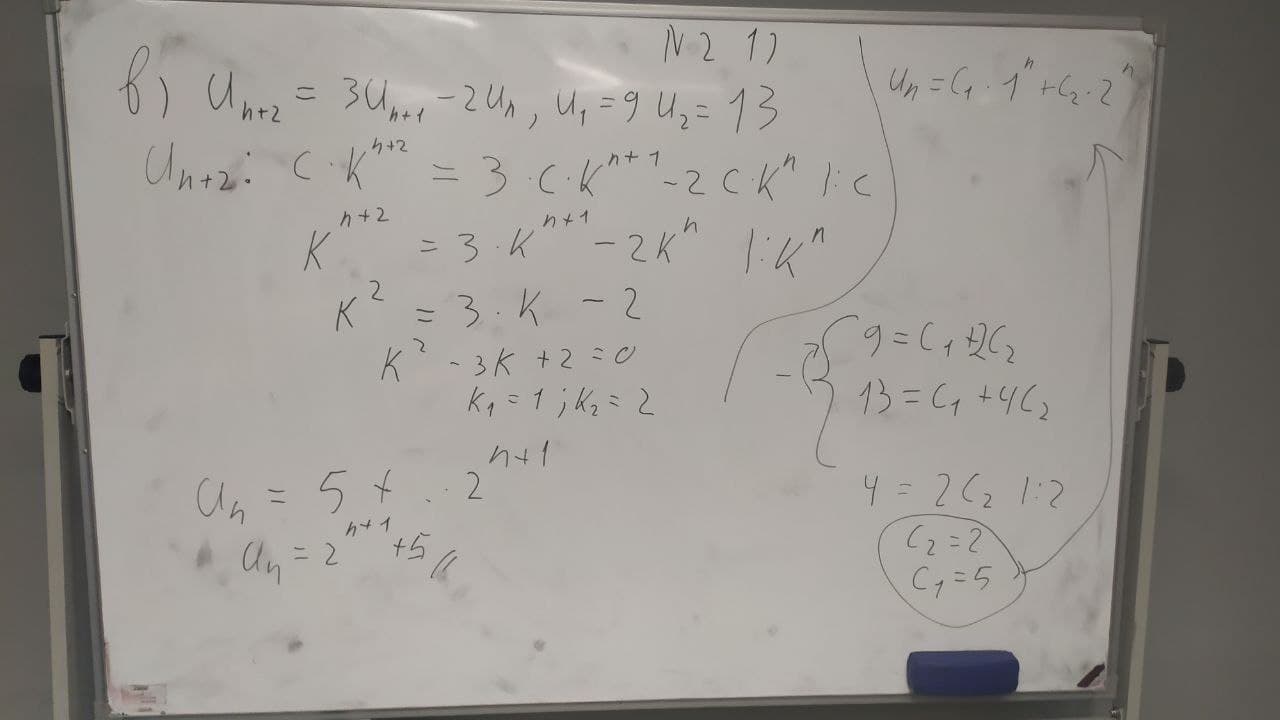 N2 1)
в) U_{n+2} = 3U_{n+1} - 2U_n, U_1 = 9 U_2 = 13
U_{n+2}: C · K^{n+2} = 3 · C · K^{n+1} - 2 C · K^n |: C
K^{n+2} = 3 · K^{n+1} - 2K^n |: K^n
K^2 = 3 · K - 2
K^2 - 3K + 2 = 0
K_1 = 1 ; K_2 = 2
U_n = 5 + . · 2^{n+1}
U_n = 2^{n+1} + 5 //
U_n = C_1 · 1^n + C_2 · 2^n
- { 9 = C_1 + 2C_2
13 = C_1 + 4C_2
4 = 2C_2 |: 2
C_2 = 2
C_1 = 5